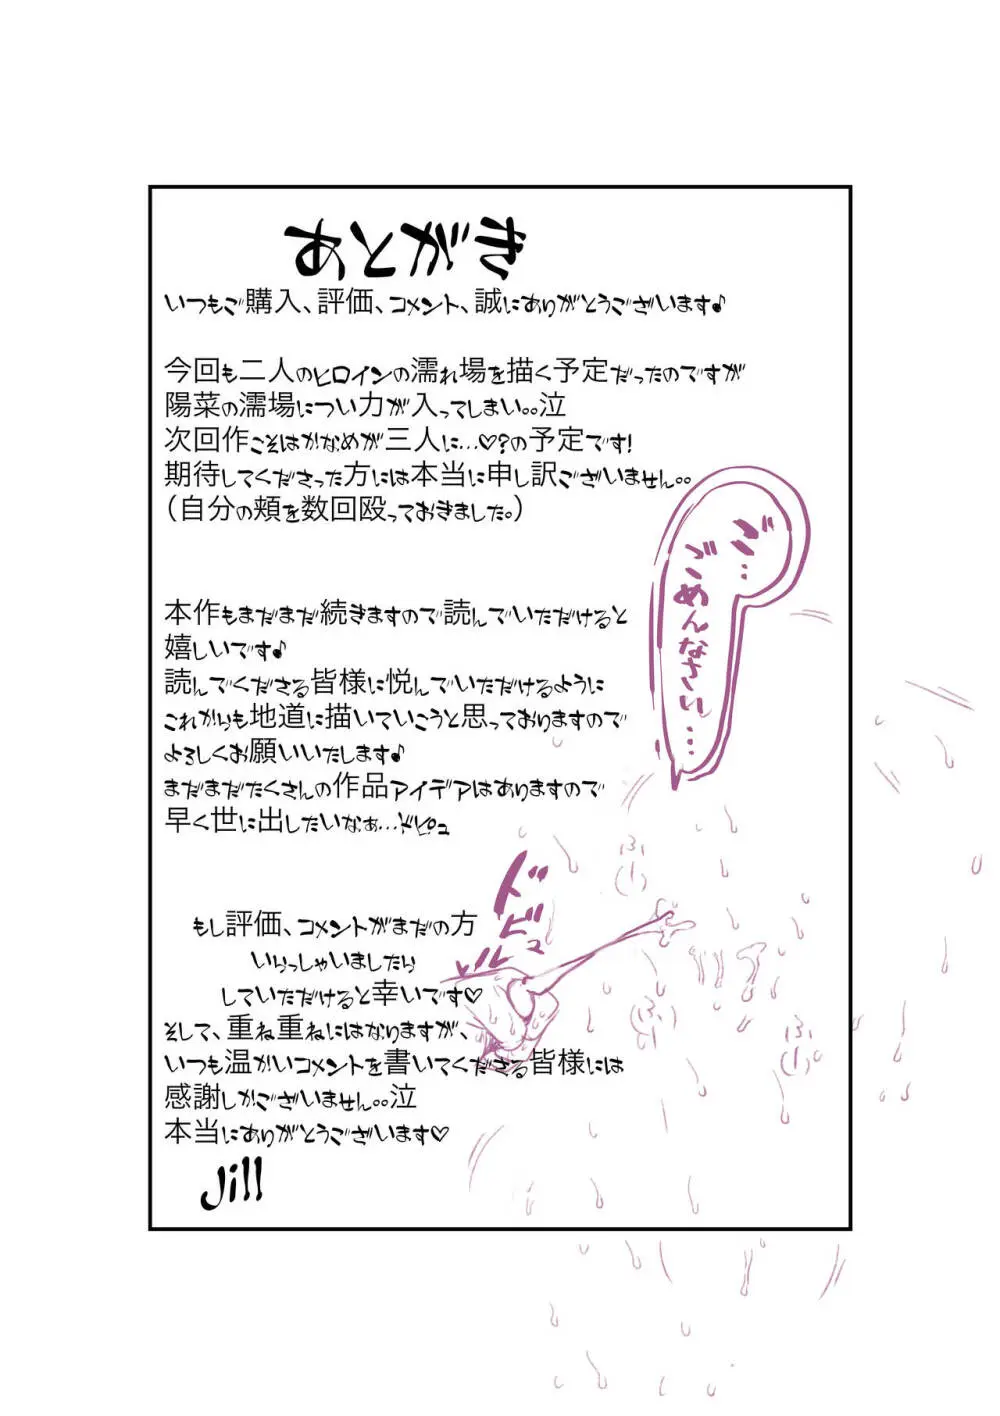 あとがき
いつもご購入、評価、コメント、誠にありがとうございます♪
今回も二人のヒロインの濡れ場を描く予定だったのですが
陽菜の濡場につい力が入ってしまい。。泣
次回作こそはかなめが三人に…♡?の予定です!
期待してくださった方には本当に申し訳ございません。。
(自分の頬を数回殴っておきました。)
ご…
ごめんなさいぃ…
本作もまだまだ続きますので読んでいただけると
嬉しいです♪
読んでくださる皆様に悦んでいただけるように
これからも地道に描いていこうと思っておりますので
よろしくお願いいたします♪
まだまだたくさんの作品アイデアはありますので
早く世に出したいなぁ…ドピュ
ふぅー
ドピュ
ルル
もし評価、コメントがまだの方
いらっしゃいましたら
していただけると幸いです♡
ふぅー
ふぅー
そして、重ね重ねにはなりますが、
いつも温かいコメントを書いてくださる皆様には
感謝しかございません。。泣
本当にありがとうございます♡
Jill